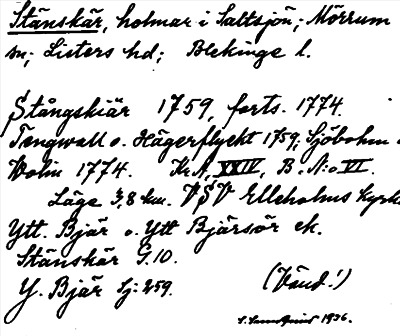 Stänskär, holmar i Saltsjön; Mörrum
sn; Listers hd; Blekinge l.
Stångskiär 1759, forts. 1774.
Tengwall o. Hägerflyckt 1759; Sjöbohm o
Wolin 1774. Kr. A, XXIV, B. N:o VI.
Läge 3,8 km. VSV Elleholms kyrka
Ytt. Bjär o. Ytt Bjärsör ek.
Stänskär G.10.
Y. Bjär Sj: 259.
(Vänd!)
1936.